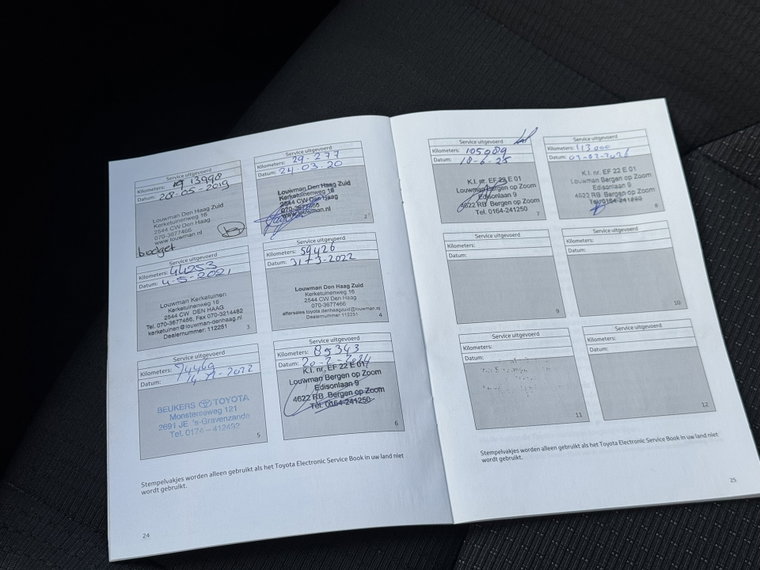 Service uitgevoerd
Kilometers: 13998
Datum: 28-05-2019
Louwman Den Haag Zuid
Kerketuinenweg 16
2544 CW Den Haag
070-3677466
www.louwman.nl
budget
1
Service uitgevoerd
Kilometers: 29-277
Datum: 24-03-20
Louwman Den Haag Zuid
Kerketuinenweg 16
2544 CW Den Haag
070-3677466
www.louwman.nl
2
Service uitgevoerd
Kilometers: 44253
Datum: 4-5-2021
Louwman Kerketuinen
Kerketuinenweg 16
2544 CW DEN HAAG
Tel. 070-3677466, Fax 070-3214482
kerketuinen@louwman-denhaag.nl
Dealernummer: 112251
3
Service uitgevoerd
Kilometers: 59426
Datum: 31-3-2022
Louwman Den Haag Zuid
Kerketuinenweg 16
2544 CW DEN HAAG
070-3677466
aftersales.toyota.denhaagzuid@louwman.nl
Dealernummer: 112251
4
Service uitgevoerd
Kilometers: 74469
Datum: 14-12-2022
BEUKERS TOYOTA
Monsterseweg 121
2691 JE 's-Gravenzande
Tel. 0174 - 412452
5
Service uitgevoerd
Kilometers: 85343
Datum: 20-2-2024
K.I. nr. EF 22 E 01
Louwman Bergen op Zoom
Edisonlaan 9
4622 RB Bergen op Zoom
Tel. 0164-241250
6
Stempelvakjes worden alleen gebruikt als het Toyota Electronic Service Book in uw land niet
wordt gebruikt.
24
Service uitgevoerd
Kilometers: 105089
Datum: 18-6-25
K.I. nr. EF 22 E 01
Louwman Bergen op Zoom
Edisonlaan 9
4622 RB Bergen op Zoom
Tel. 0164-241250
7
Service uitgevoerd
Kilometers: 113000
Datum:
K.I. nr. EF 22 E 01
Louwman Bergen op Zoom
Edisonlaan 9
4622 RB Bergen op Zoom
Tel. 0164-241250
8
Service uitgevoerd
Kilometers:
Datum:
9
Service uitgevoerd
Kilometers:
Datum:
10
Service uitgevoerd
Kilometers:
Datum:
11
Service uitgevoerd
Kilometers:
Datum:
12
Stempelvakjes worden alleen gebruikt als het Toyota Electronic Service Book in uw land niet
wordt gebruikt.
25